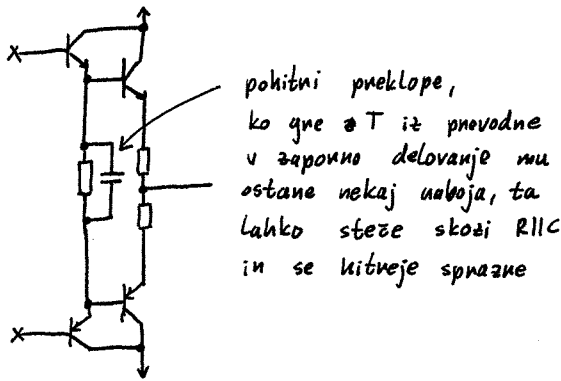 pohitri preklope,
ko gre T iz prevodne
v zaporno delovanje mu
ostane nekaj naboja, ta
lahko steče skozi R||C
in se hitreje sprazne